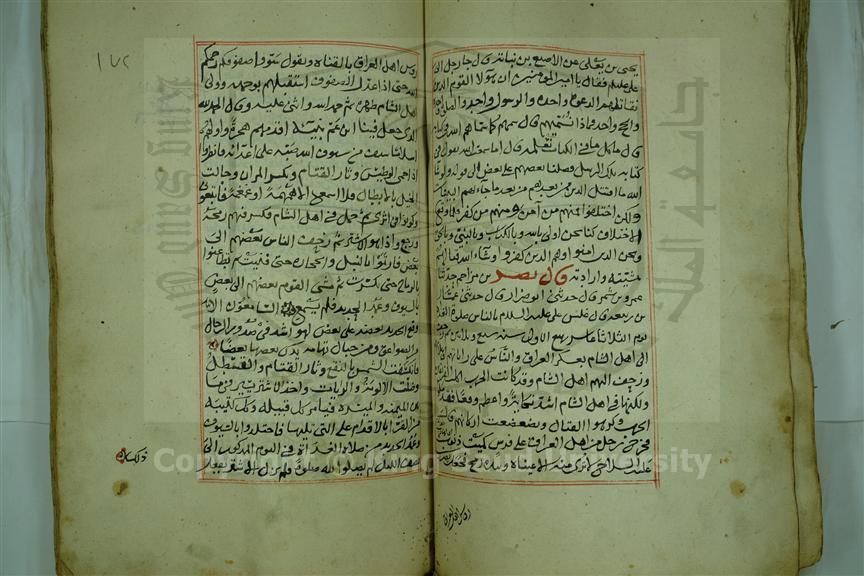 يحيى بن يعلى عن الأصبغ بن نباتة قال جا رجل الى
على عليه فقال يا امير المؤمنين ان هولا القوم الذين
نقاتلهم الدعوة واحدة والرسول واحد والصلوة واحدة
والحج واحد فماذا نسميهم قال سمهم كما سماهم الله في كتابه
قال ما كل ما في الكتاب تعلمه قال اما سمعت الله يقول في
كتابه تلك الرسل فضلنا بعضهم على بعض الى قوله ولو شا
الله ما اقتتل الذين من بعدهم من بعد ما جاءتهم البينات
ولكن اختلفوا فمنهم من آمن ومنهم من كفر فلما وقع
الاختلاف كنا نحن اولى بالله وبالكتاب وبالنبي وبالحق
ونحن الذين امنوا وهم الذين كفروا وشاء الله قتالهم
مشيته وارادته قال نصر بن مزاحم حدثنا
عمرو بن شمر قال حدثني ابو ضرار قال حدثني عمار
بن ربيعة قال غلس على عليه السلام بالناس صلاة الغداة
يوم الثلاثا عاشر ربيع الاول سنة سبع وثلاثين ثم زحف
الى اهل الشام بعسكر العراق والناس على راياتهم
وزحف اليهم اهل الشام وقد كانت الحرب اكلت الفريقين
ولكنها في اهل الشام اشد نكاية واعظم وقعا فقد ملوا
الحرب وكرهوا القتال وتضعضعت اركانهم قال
فخرج رجل من اهل العراق على فرس كميت ذنوب
عليه السلاح لا يرى منه الا عيناه وبيده رمح فجعل يضرب
روس اهل العراق
روس اهل العراق بالقناة ويقول سووا صفوفكم رحمكم
الله حتى اذا عدل الصفوف استقبلهم بوجهه وولى
اهل الشام ظهره ثم حمد الله واثنى عليه وقال الحمد لله
الذي جعل فينا ابن عم نبيه اقدمهم هجرة واولهم
اسلاما سيف من سيوف الله صبه على اعدائه فانظروا
اذا حمى الوطيس وثار القتام وتكسر المران وجالت
الخيل بالابطال فلا اسمع الا غمغمة او همهمة فاتبعوني
وكونوا في اثري ثم حمل في اهل الشام فكسر فيهم رمحه
ورجع واذا هو الاشتر ثم زحف الناس بعضهم الى
بعض فارتموا بالنبل والحجارة حتى فنيت ثم تطاعنوا
بالرماح حتى تكسرت ثم مشى القوم بعضهم الى بعض
بالسيوف وعمد الحديد فلم يسمع السامعون الا
وقع الحديد بعضه على بعض لهو اشد في صدور الرجال
من الصواعق ومن جبال تهامة يدك بعضها بعضا
وانكسفت الشمس بالنقع وثار القتام والقسطل
وضلت الالوية والرايات واخذ الاشتر يسير فيما
بين الميمنة والميسرة فيامر كل قبيلة وكل كتيبة
من القرا بالاقدام على التي يليها فاجتلدوا بالسيوف
وعمد الحديد من صلاة الغداة في اليوم المذكور الى
نصف الليل لم يصلوا لله صلوة فلم يزل الاشتر يفعل
ذلك
١٧٢